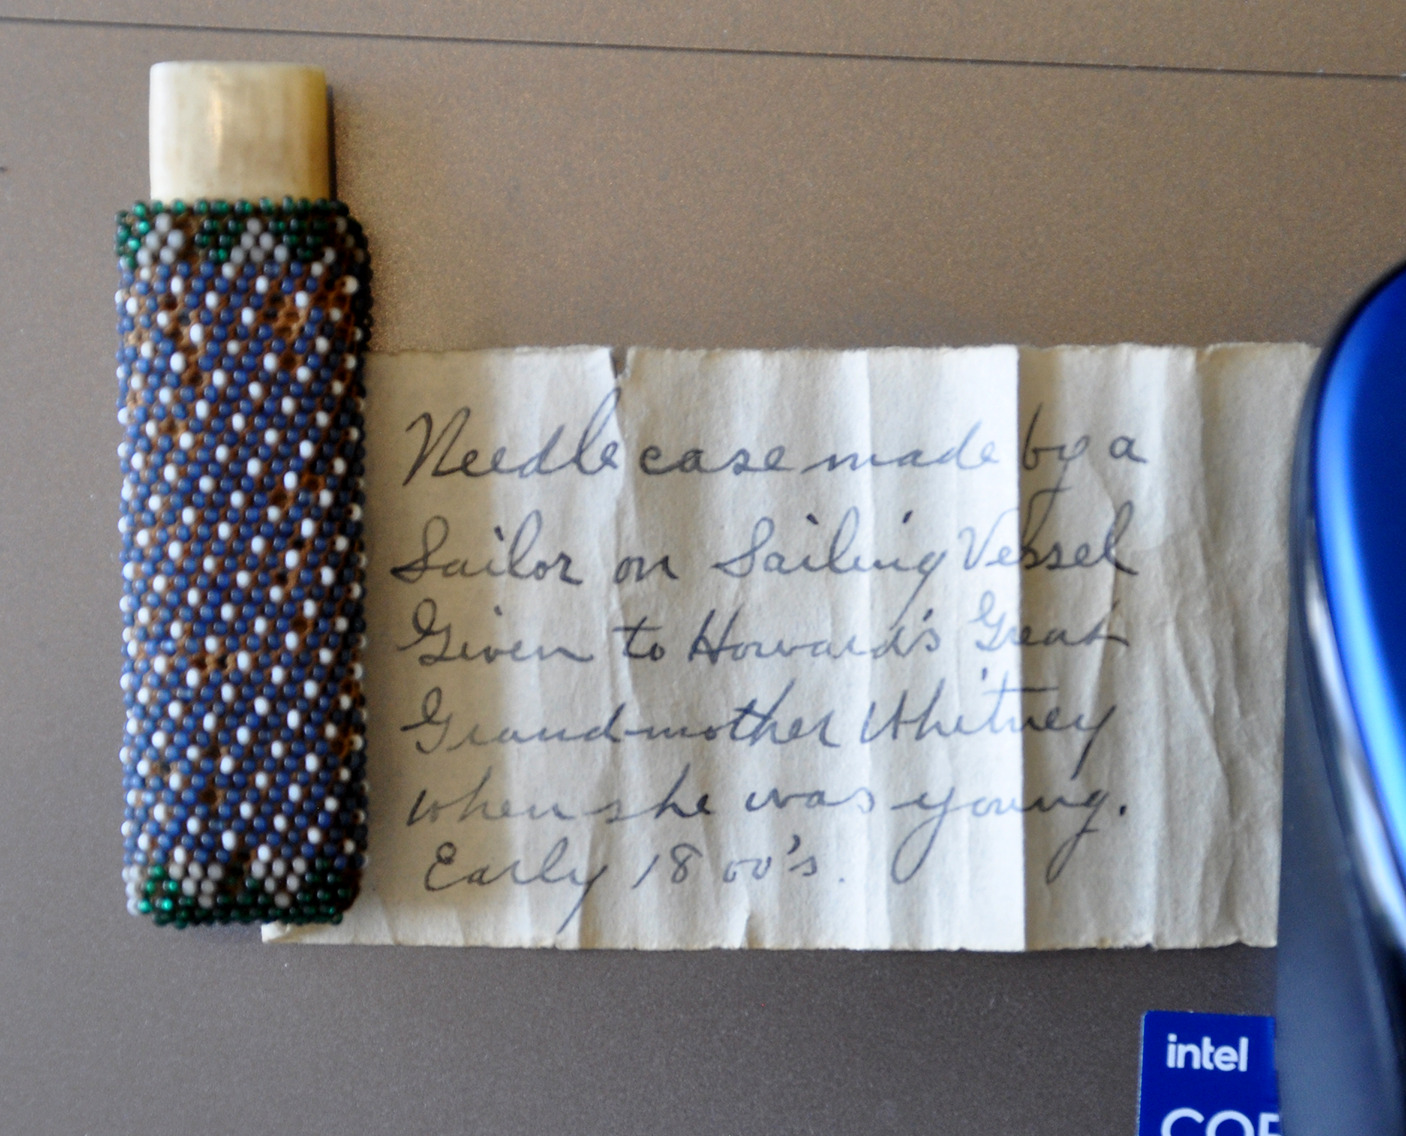 Needle case made by a
Sailor on Sailing Vessel
Given to Howard's Great
Grandmother Whitney
when she was young.
Early 1800's.
intel